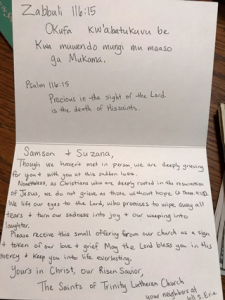 Zabbuli 116:15
Okufa kw'abatukuvu be
Kwa muwendo mungi mu maaso
ga Mukama.
Psalm 116:15
Precious in the sight of the Lord
is the death of His saints.
Samson + Suzana,
Though we haven't met in person, we are deeply grieving
for you + with you at this sudden loss.
Nonetheless, as Christians who are deeply rooted in the resurrection
of Jesus, we do not grieve as those without hope
We lift our eyes to the Lord, who promises to wipe away all
tears + turn our sadness into joy + our weeping into
laughter.
Please receive this small offering from our church as a sign
+ token of our love + grief. May the Lord bless you in this
mercy + keep you into life everlasting.
Yours in Christ, our Risen Savior,
The Saints of Trinity Lutheran Church
your neighbors at